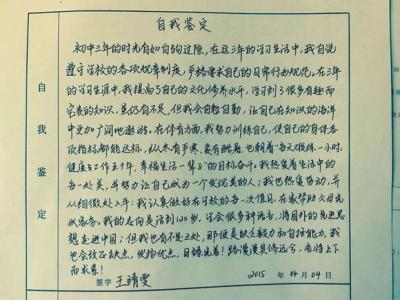 自我鉴定
自我鉴定
初中三年的时光有如白驹过隙，在这三年的学习生活中，我自觉
遵守学校的各项规章制度，严格要求自己的日常行为规范。在三年
的学习生涯中，我提高了自己的文化修养水平，学习到了很多有趣而
宝贵的知识，虽仍有不足，但我会自勉自勤，让自己在知识的海洋
中更加广阔地遨游。在体育方面，我努力训练自己，使自己的身体各
项指标都能达标，从冬有严寒，夏有酷暑，也朝着"每天锻炼一小时，
健康工作五十年，幸福生活一辈子"的目标奋斗。我热爱着生活中的
每一处美，并努力让自己成为一个发现美的人；我也热爱劳动，并
从细微处入手：我认真做好在学校的每一次值日，在家帮助父母完
成家务。我的志向是活到120岁，学会很多种语言，将国外的先进思
想走进中国；但我也有不足之处，那便是缺乏毅力和自控能力，我也
也会改正缺点，发扬优点。日臻完善！路漫漫其修远兮，吾将上下
而求索！
签字 王靖雯
2015 年 04 月 04 日